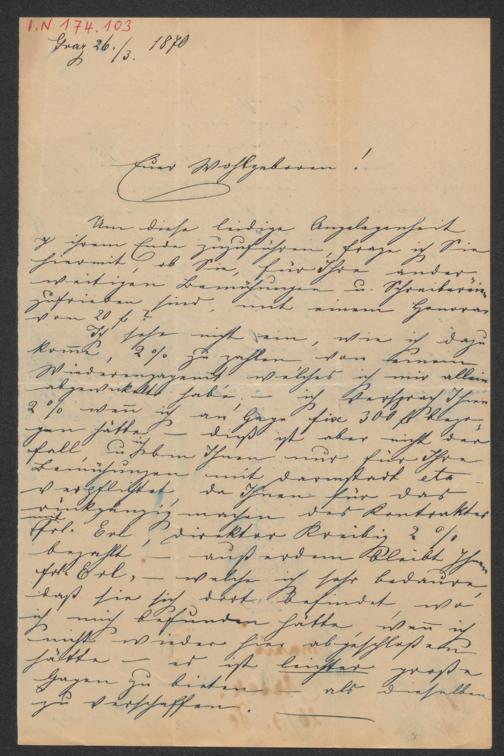 I.N. 174.103
Graz 26./3. 1870
Euer Wohlgeboren!
Um diese leidige Angelegenheit
ihrem Ende zuzuführen, frage ich Sie
hiermit, ob Sie, für Ihre ander
weitigen Bemühungen u. Schreibereien
zufrieden sind, mit einem Honorar
von 20 f?
Ich sehe nicht ein, wie ich dazu
komme, 2% zu zahlen von einem
Wiederengagement welches ich mir allein
abgewickelt habe, – ich versprach Ihnen
2% wen ich an Gage fix 300 f bezo-
gen hätte – dieß ist aber nicht der
Fall, u. ich bin Ihnen nur für Ihre
Bemühungen mit Darmstadt etc
verpflichtet, da Ihnen für das
rückgängig machen des Kontraktes
Frl. Erl, Direktor Kreibig 2%
bezahlt – außerdem bleibt Ihnen
Frl. Erl, – welche ich sehr bedaure,
daß sie sich dort befindet, wo
ich mich befunden hätte, wen ich
nicht wieder hier abgeschloßen
hätte – es ist leichter große
Gagen zu bieten – als dieselben
zu verschaffen.